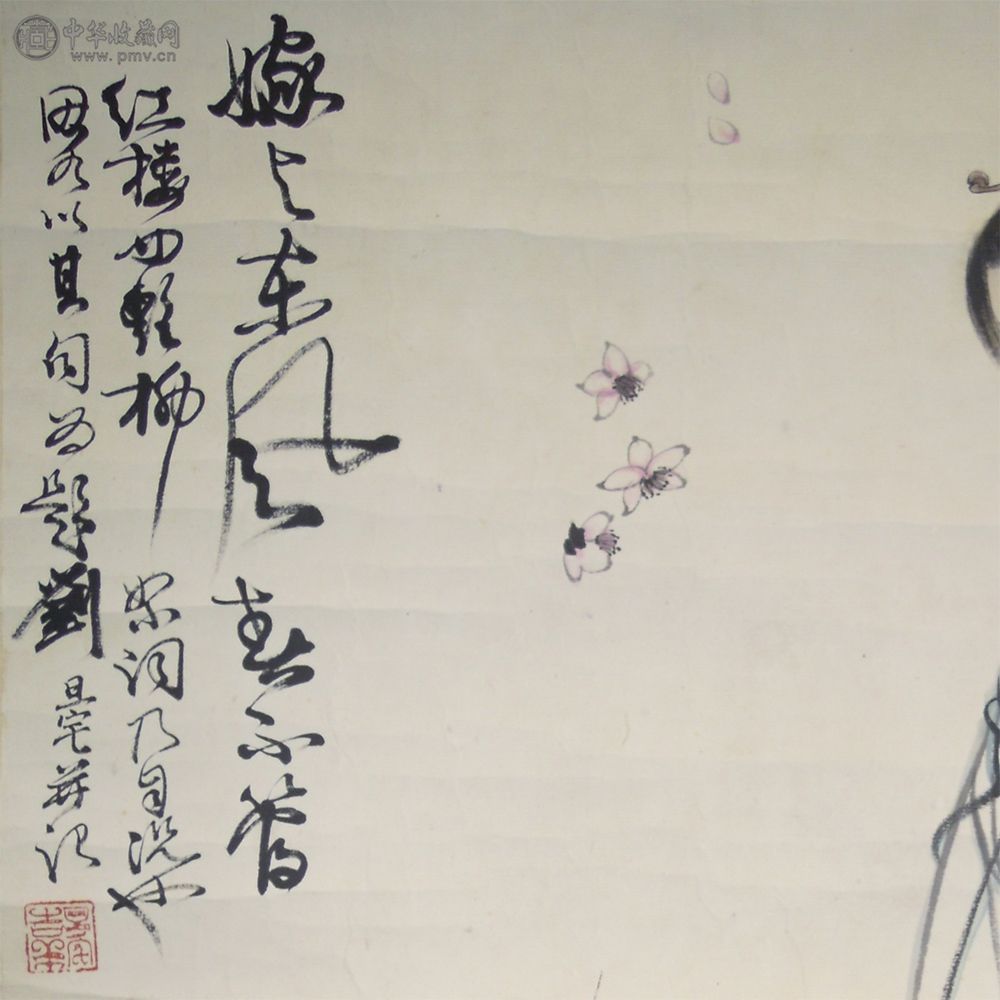 中华收藏网
www.pmv.cn
嫁与东风春不管
红楼柳絮词乃自况也
因以其句为题 劉旦宅并记